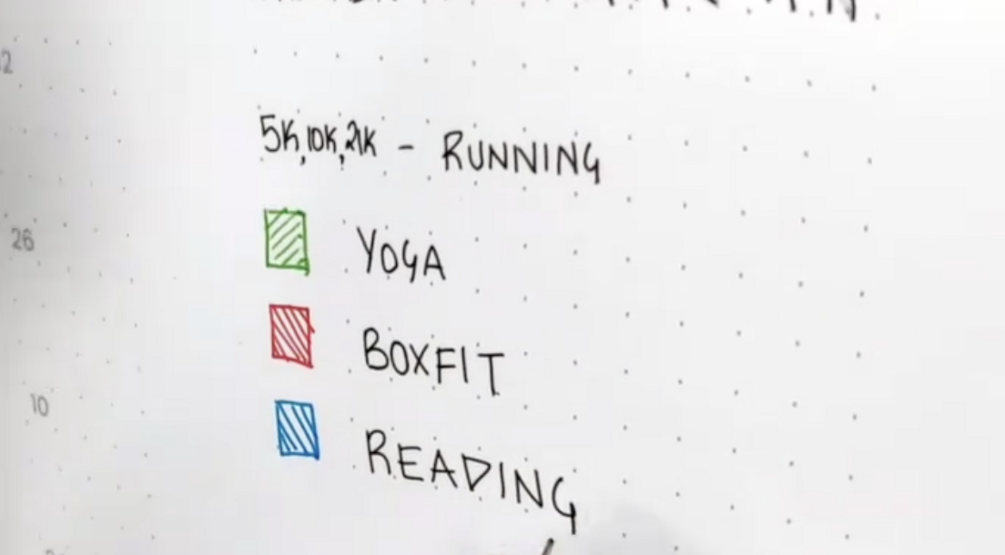 5K,10K,21K - RUNNING
YOGA
26
BOXFIT
10
READING